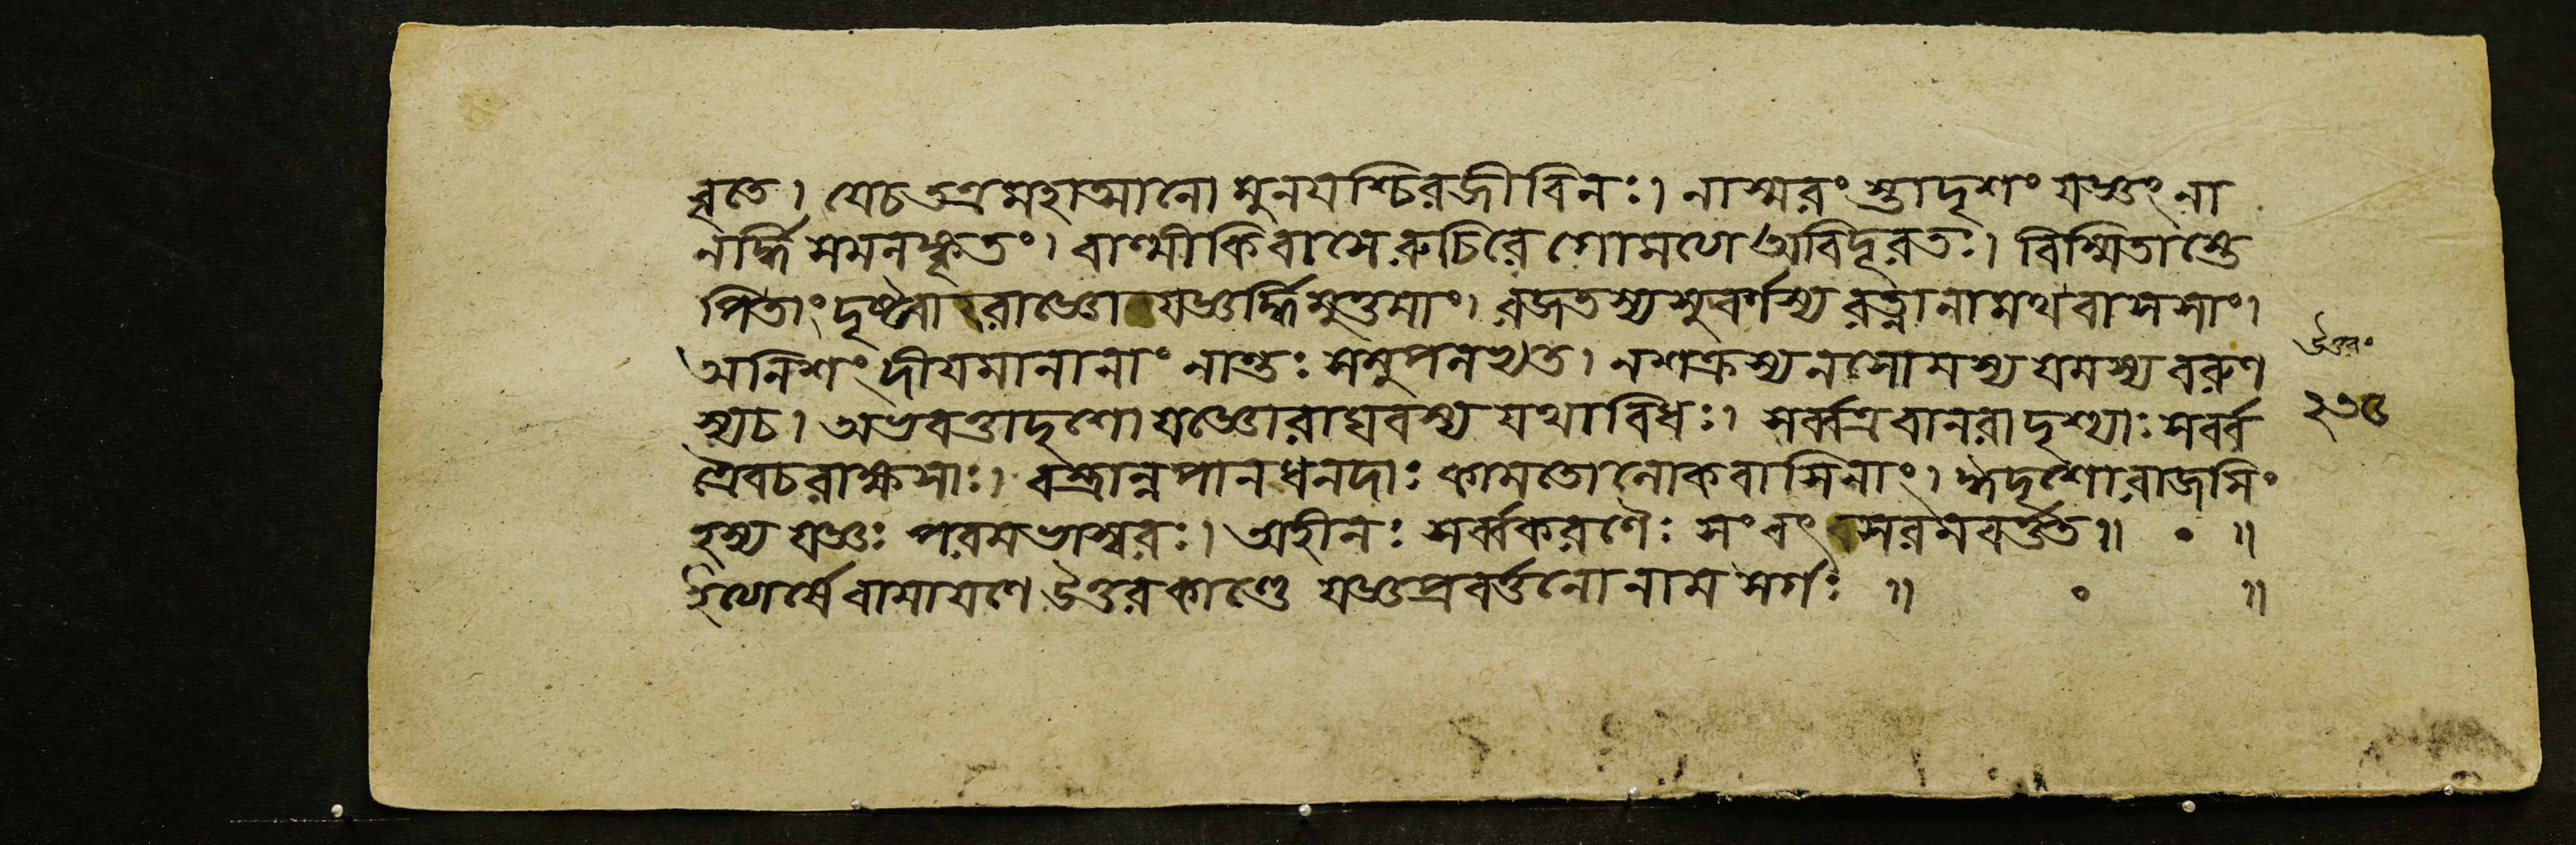 বৃতে। যেচতত্রমহাত্মানো মুনযশ্চিরজীবিনঃ। নাস্মরং স্তাদৃশং যজ্ঞং না
নর্দ্ধি মেমনকৃতং। বাল্মীকিবাসে রুচিরে গোমত্যে অবিদূরতঃ। বিস্মিতাস্তে
পিতাং দৃষ্ট্বা রাজ্ঞো যজ্ঞর্দ্ধিমুত্তমাং। রজতস্য সুবর্ণস্য রত্নানামথবাসসাং।
অনিশং দীযমানানাং নান্তঃ সমুপলভ্যত। নশক্রস্য নসোমস্য যমস্য বরুণ
স্যচ। অভবত্তাদৃশো যজ্ঞো রাঘবস্য যথাবিধঃ। সর্ব্বত্র বানরা দৃশ্যাঃ সর্ব্ব
ত্রৈবচ রাক্ষসাঃ। বস্ত্রান্নপান ধনদাঃ কামতো লোকবাসিনাং। ঈদৃশো রাজসিং
হস্য যজ্ঞঃ পরমভাস্বরঃ। অহীনঃ সর্ব্বকরণৈঃ সংবৎসরমবর্ত্তত॥ ॰ ॥
ইত্যার্ষে রামাযণে উত্তরকাণ্ডে যজ্ঞপ্রবর্ত্তনো নাম সর্গঃ ॥ ॰ ॥
উত্তরং
২৩৫